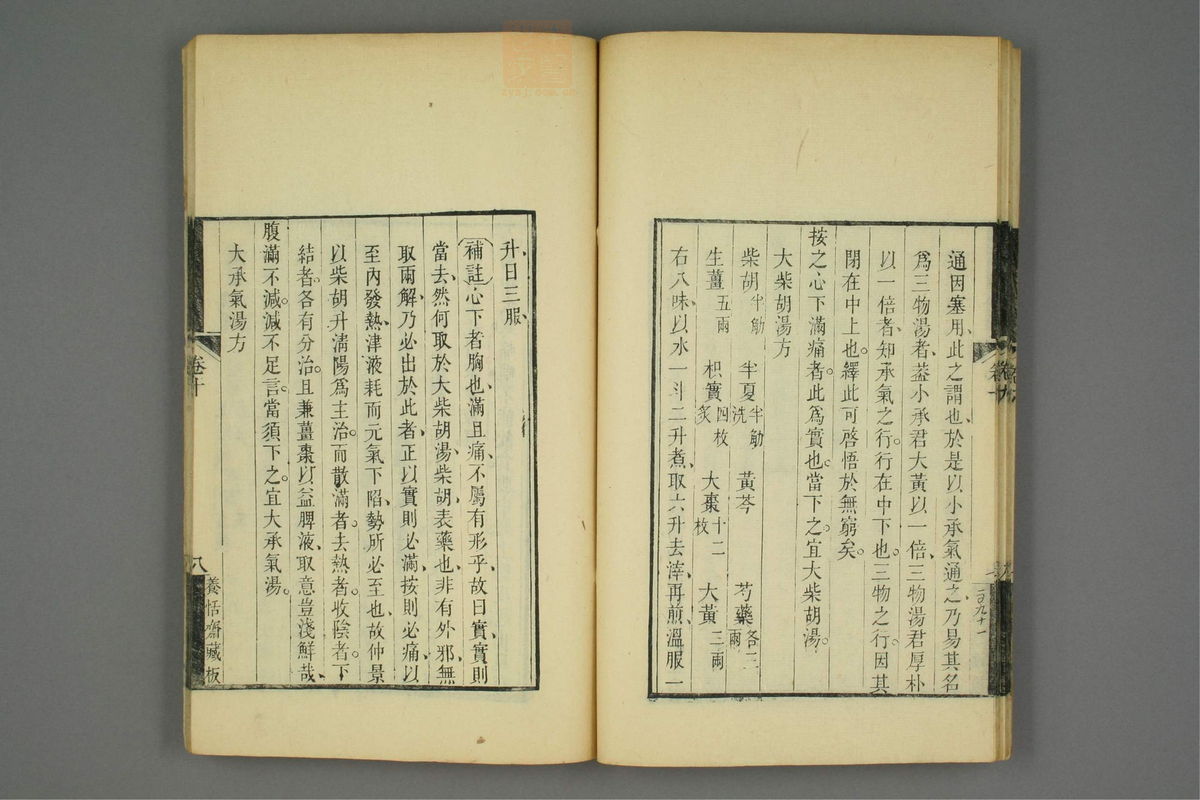 通因塞用、此之謂也、於是以小承氣通之、乃易其名
爲三物湯者、蓋小承君大黃以一倍、三物湯君厚朴
以一倍者、知承氣之行。行在中下也。三物之行。因其
閉在中上也。繹此可啓悟於無窮矣。
按之心下滿痛者。此爲實也。當下之。宜大柴胡湯。
大柴胡湯方
柴胡半觔 半夏半觔洗 黃芩 芍藥各三兩
生薑五兩 枳實四枚炙 大棗十二枚 大黃三兩
右八味、以水一斗二升煮、取六升去滓、再煎、溫服一
升、日三服、
補註 心下者胸也、滿且痛、不屬有形乎、故曰實、實則
當去、然何取於大柴胡湯、柴胡表藥也、非有外邪、無
取兩解、乃必出於此者、正以實則必滿、按則必痛、以
至內發熱、津液耗而元氣下陷、勢所必至也、故仲景
以柴胡升清陽爲主治。而散滿者。去熱者。收陰者。下
結者。各有分治。且兼薑棗以益脾液、取意豈淺鮮哉、
腹滿不減。減不足言。當須下之。宜大承氣湯。
大承氣湯方
卷十
八
養恬齋藏板